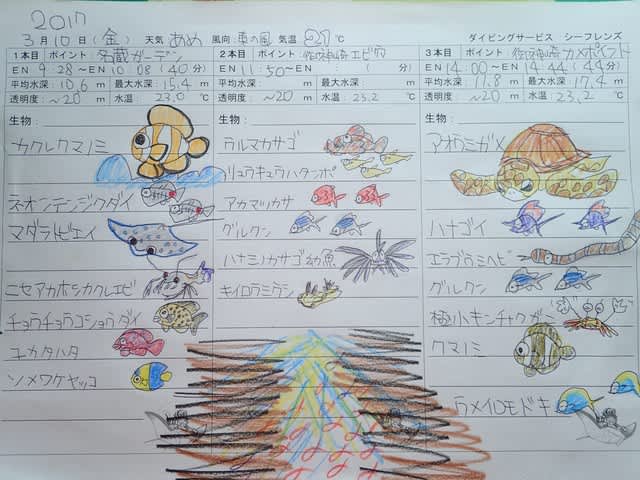 2017
3月10日(金) 天気 あめ 風向 東の風 気温 27℃ ダイビングサービス シーフレンズ
1本目 ポイント 名蔵ガーデン
EN 9 28〜EN 10 08 (40分)
平均水深 10.6 m 最大水深 15.4 m
透明度 〜20 m 水温 23.0 ℃
生物:
カクレクマノミ
ネオンテンジクダイ
マダラトビエイ
ニセアカホシカクレエビ
チョウチョウコショウダイ
ユカタハタ
ソメワケヤッコ
2本目 ポイント
EN 11 50〜EN ( 分)
平均水深: m 最大水深: m
透明度: 〜20 m 水温: 23.2 ℃
生物:
ウルマカサゴ
リュウキュウハタンポ
アカマツカサ
グルクン
ハナミノカサゴ幼魚
キイロウミウシ
3本目 ポイント: カメポイント
EN 14 00〜EN 14 44 (44分)
平均水深: 11.8 m 最大水深: 17.4 m
透明度: 〜20 m 水温: 23.2 ℃
生物:
アオウミガメ
ハナゴイ
エラブウミヘビ
グルクン
極小キンチャクガニ
クマノミ
ウメイロモドキ